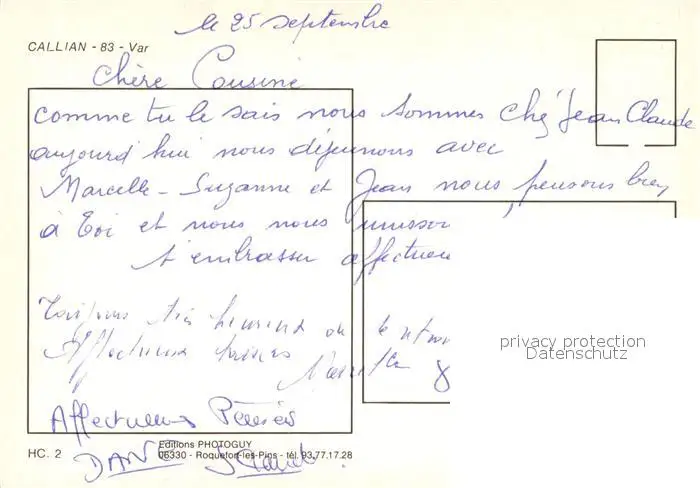 le 25 septembre
CALLIAN - 83 - Var
Chère Cousine
comme tu le sais nous sommes chez Jean Claude
aujourd'hui nous déjeunons avec
Marcelle - Suzanne et Jean nous pensons bien
à toi et nous nous unissons
t'embrasser affectueu
Toujours très heureux de
Affectueux baisers
privacy protection
Datenschutz
Affectueuses Pensées
Editions PHOTOGUY
HC. 2
06330 - Roquefort-les-Pins - tél. 93.77.17.28
DANY